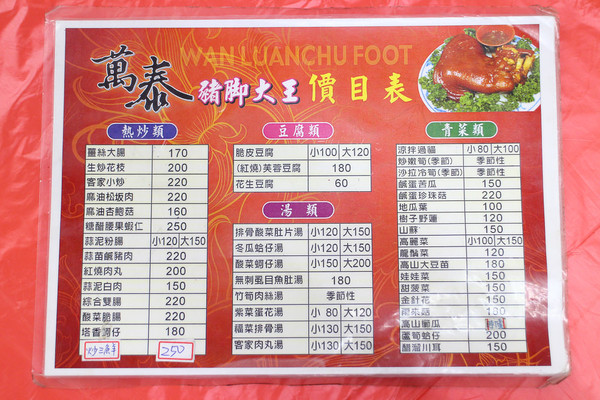 WAN LUANCHU FOOT
萬泰 豬腳大王 價目表
熱炒類
薑絲大腸 170
生炒花枝 200
客家小炒 220
麻油松坂肉 220
麻油杏鮑菇 160
糖醋腰果蝦仁 250
蒜泥粉腸 小120 大150
蒜苗鹹豬肉 220
紅燒肉丸 200
蒜泥白肉 150
綜合雙腸 220
酸菜脆腸 220
塔香蚵仔 180
炒三鮮羊 250
豆腐類
脆皮豆腐 小100 大120
(紅燒)芙蓉豆腐 180
花生豆腐 60
湯類
排骨酸菜肚片湯 小120 大150
冬瓜蛤仔湯 小120 大150
酸菜蚵仔湯 小150 大200
無刺虱目魚肚湯 180
竹筍肉絲湯 季節性
紫菜蛋花湯 小80 大120
福菜排骨湯 小130 大150
客家肉丸湯 小130 大150
青菜類
涼拌過貓 小80 大100
炒嫩筍(季節) 季節性
沙拉冷筍(季節) 季節性
鹹蛋苦瓜 150
鹹蛋珍珠菇 220
地瓜葉 100
樹子野蓮 120
山蘇 150
高麗菜 小100 大150
龍鬚菜 120
高山大豆苗 180
娃娃菜 150
甜菠菜 150
金針花 150
180
高山
蘆筍蛤仔 200
醋溜川耳 150